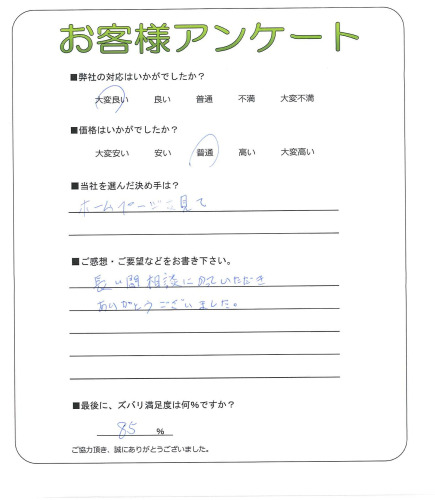 お客様アンケート
■弊社の対応はいかがでしたか？
大変良い 良い 普通 不満 大変不満
■価格はいかがでしたか？
大変安い 安い 普通 高い 大変高い
■当社を選んだ決め手は？
ホームページを見て
■ご感想・ご要望などをお書き下さい。
長い間相談にのっていただき
ありがとうございました。
■最後に、ズバリ満足度は何%ですか？
85 %
ご協力頂き、誠にありがとうございました。